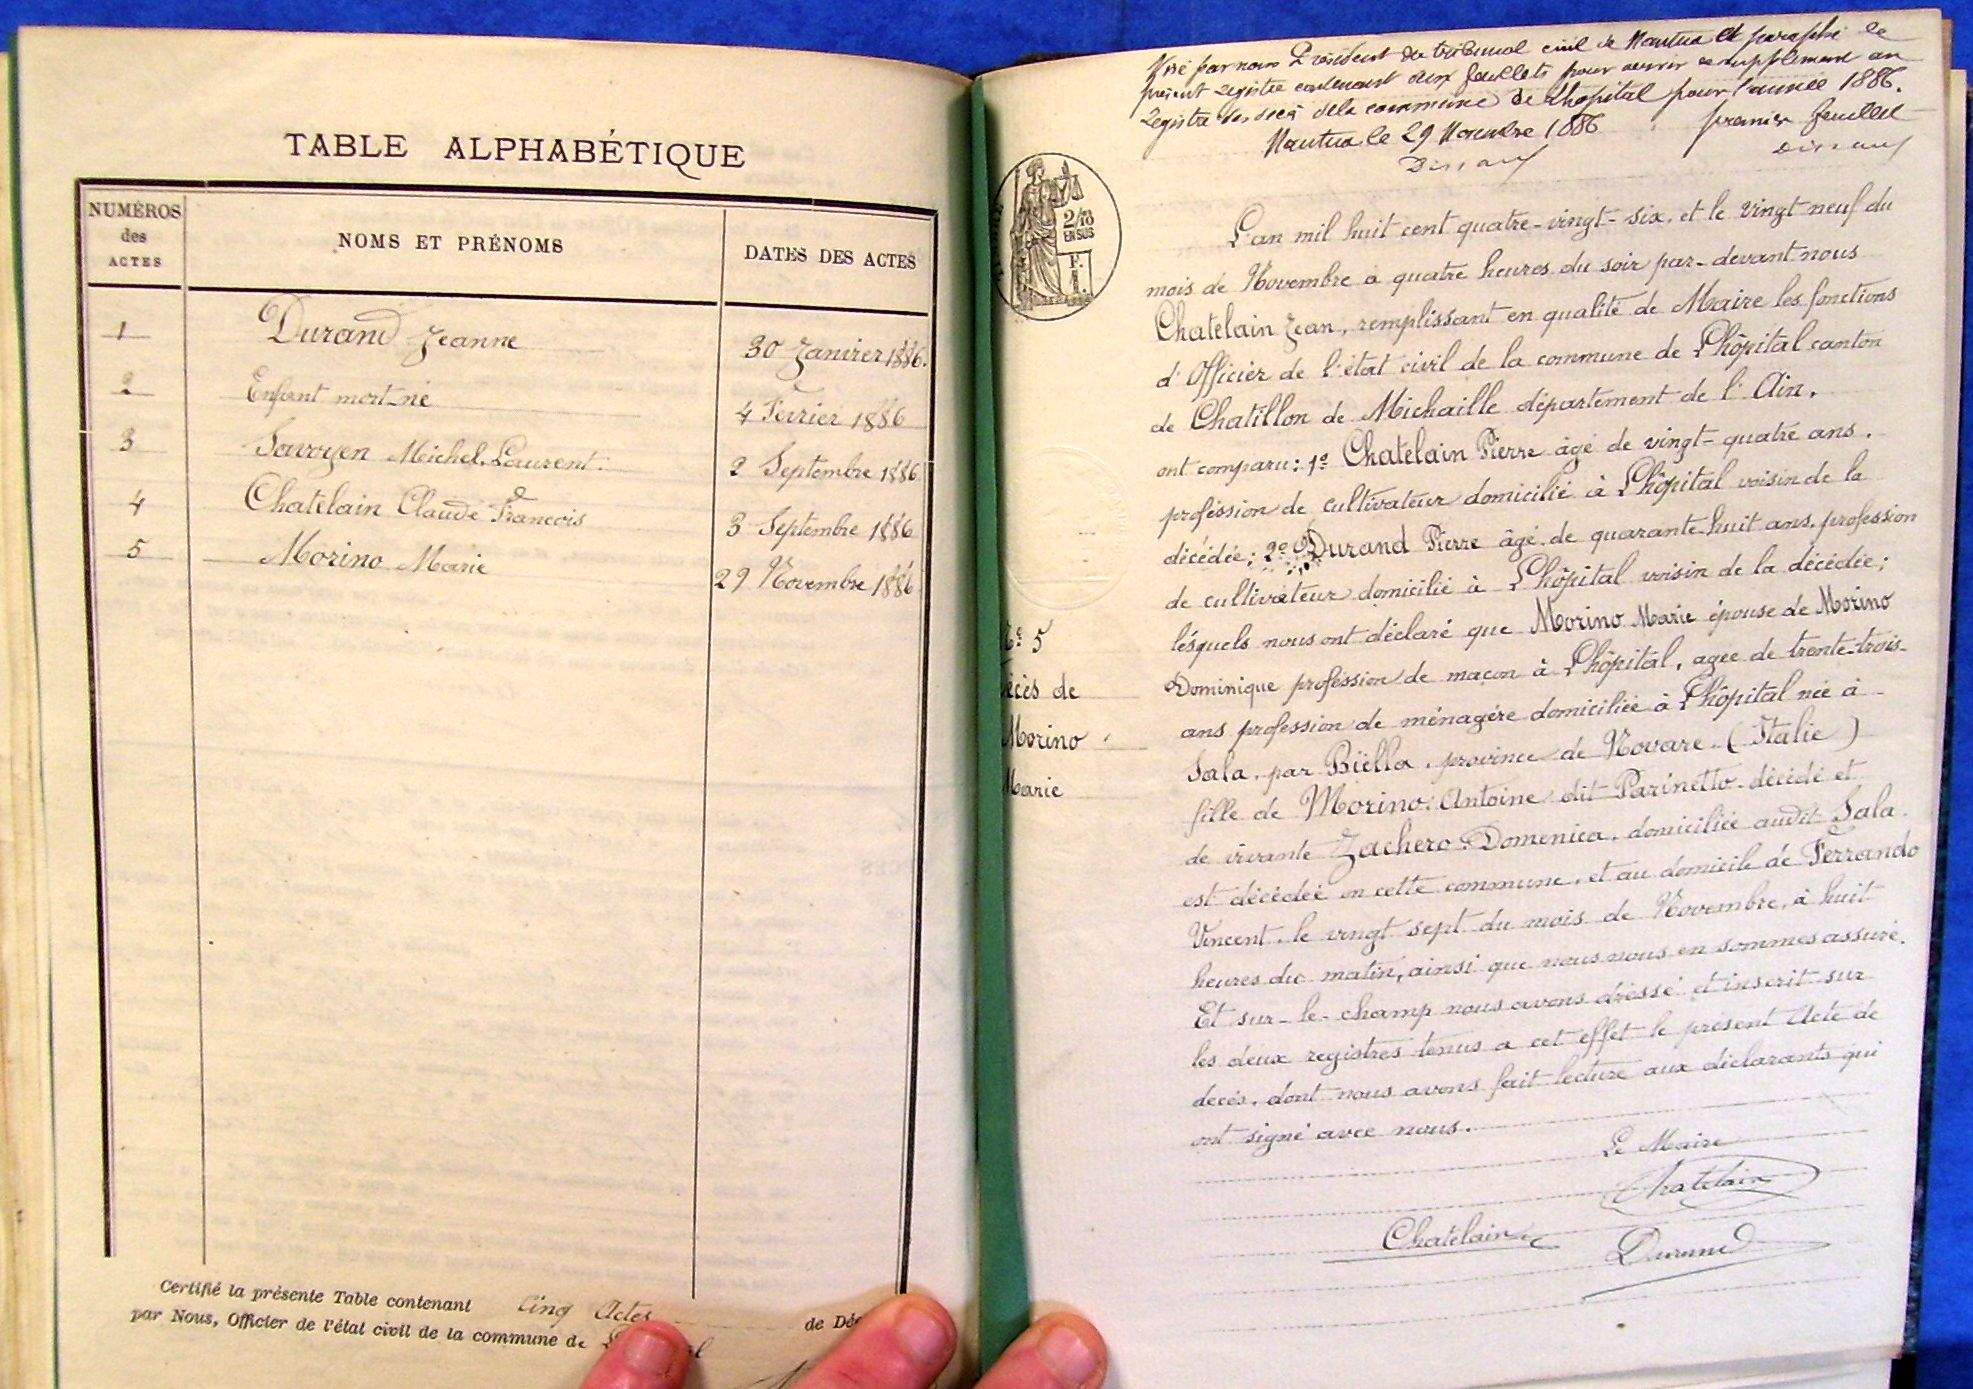 TABLE ALPHABÉTIQUE
NUMÉROS
des
ACTES
NOMS ET PRÉNOMS
DATES DES ACTES
1 Durand Jeanne 30 Janvier 1886.
2 Enfant mort-né 4 Fevrier 1886
3 Savoyen Michel Laurent. 2 Septembre 1886
4 Chatelain Claude Francois 3 Septembre 1886
5 Morino Marie 29 Novembre 1886
Certifié la présente Table contenant cinq Actes de Déc
par Nous, Officier de l'état civil de la commune de
Visé par nous Président du tribunal civil de Nantua et paraphé le
présent registre contenant deux feuillets pour servir de supplément au
registre des décès de la commune de Lhopital pour l'année 1886.
Nantua le 29 Novembre 1886 premier feuillet
2/10
EN SUS
F.
1
L'an mil huit cent quatre-vingt-six, et le vingt neuf du
mois de Novembre à quatre heures du soir par-devant nous
Chatelain Jean, remplissant en qualité de Maire les fonctions
d'Officier de l'état civil de la commune de Lhôpital canton
de Chatillon de Michaille département de l'Ain.
ont comparu: 1º Chatelain Pierre âgé de vingt-quatre ans.
profession de cultivateur domicilié à Lhôpital voisin de la
décédée; 2º Durand Pierre âgé de quarante-huit ans, profession
de cultivateur domicilié à Lhôpital voisin de la décédée;
lesquels nous ont déclaré que Morino Marie épouse de Morino
Dominique profession de maçon à Lhôpital, agée de trente-trois-
ans profession de ménagère domiciliée à Lhôpital née à
Sala, par Biella, province de Novare (Italie)
fille de Morino Antoine dit Parinetto décédé et
de vivante Zachero Domenica, domiciliée audit Sala.
est décédée en cette commune, et au domicile de Ferrando
Vincent, le vingt sept du mois de Novembre, à huit
heures du matin, ainsi que nous nous en sommes assuré.
Et sur-le-champ nous avons dressé et inscrit sur
les deux registres tenus a cet effet le présent Acte de
décès, dont nous avons fait lecture aux déclarants qui
ont signé avec nous.
Nº 5
écès de
Morino
Marie
Le Maire
Chatelain
Chatelain
Durand